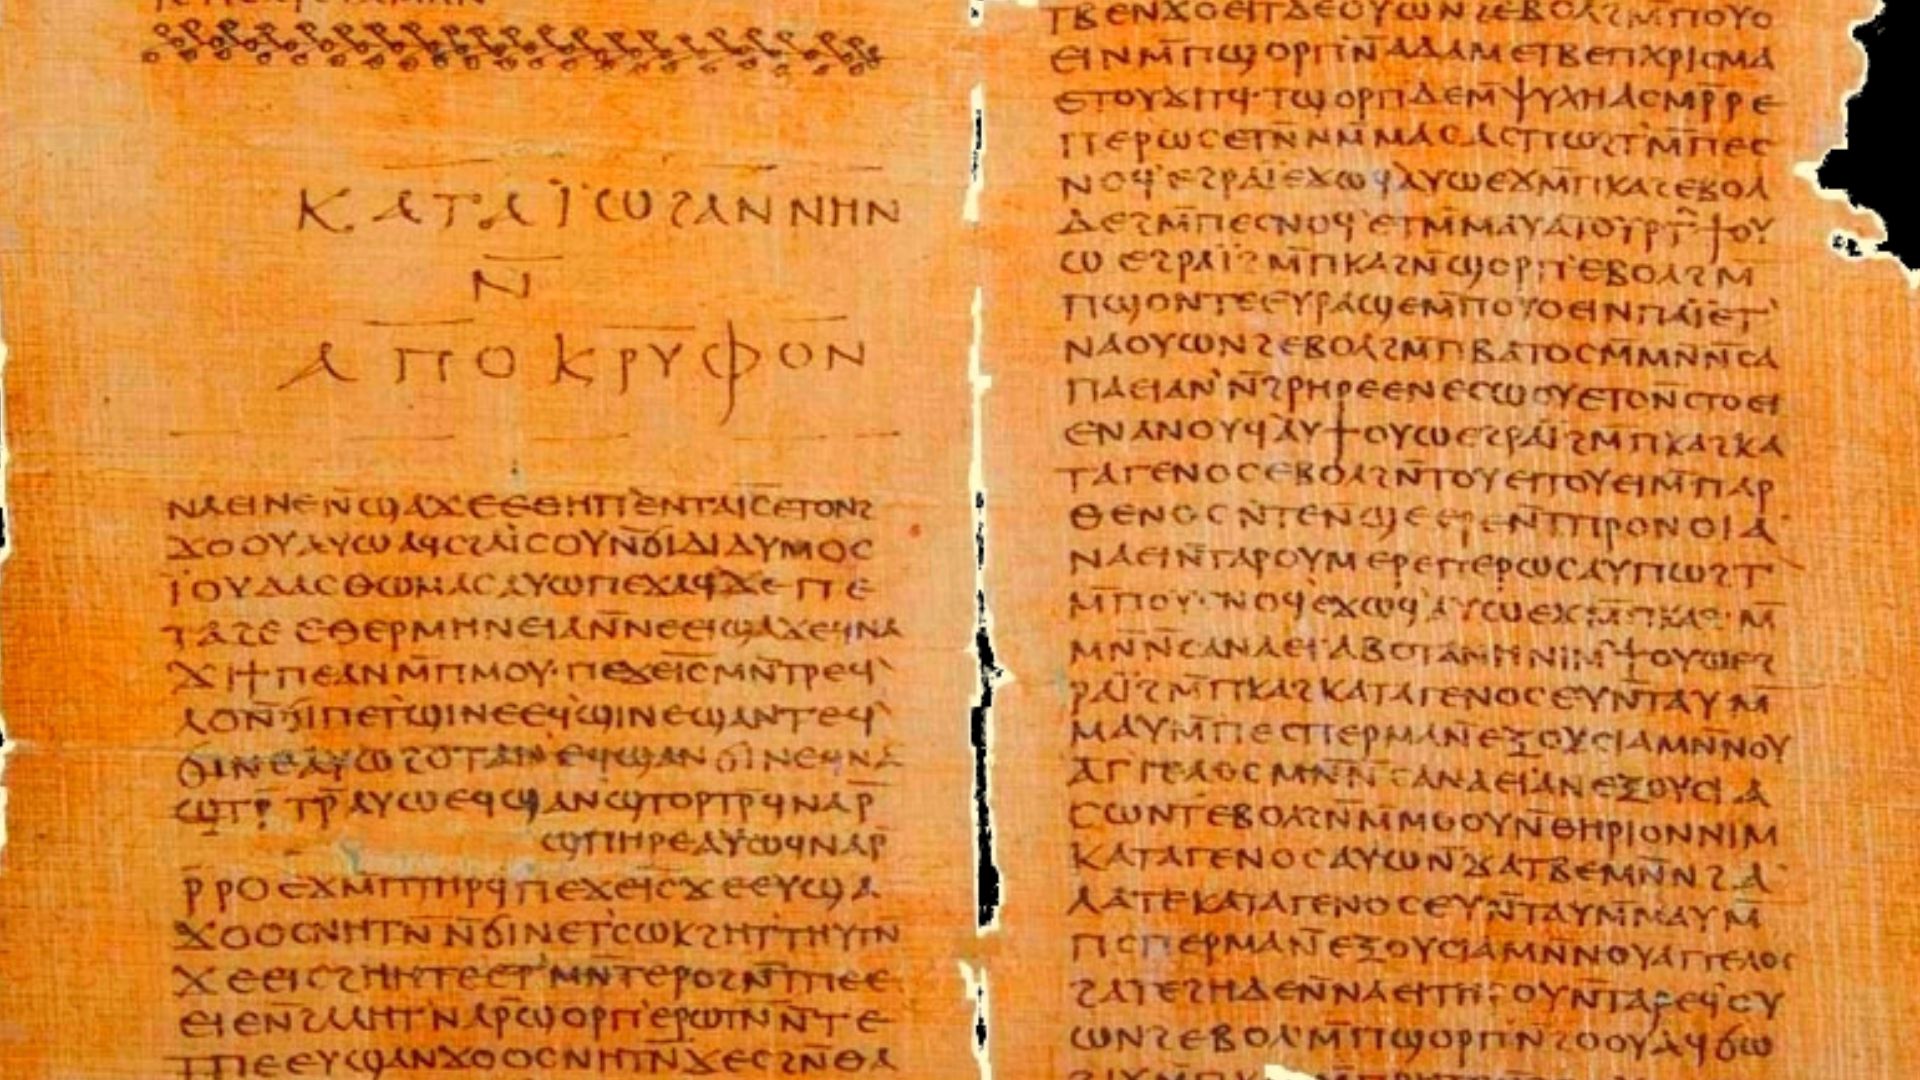 ⲕⲁⲧⲁ ⲓ̈ⲱϩⲁⲛⲛⲏⲛ
ⲛ̅
ⲁⲡⲟⲕⲣⲩⲫⲟⲛ
ⲛⲁⲉⲓⲛⲉⲛ̅ϣⲁϫⲉⲉⲑⲏⲡ`ⲉⲛⲧⲁⲓ̅ⲥ̅ⲉⲧⲟⲛϩ
ϫⲟⲟⲩⲁⲩⲱⲁϥⲥϩⲁⲓ̈ⲥⲟⲩⲛ̅ϭⲓⲇⲓⲇⲩⲙⲟⲥ
ⲓ̈ⲟⲩⲇⲁⲥⲑⲱⲙⲁⲥⲁⲩⲱⲡⲉϫⲁϥϫⲉⲡⲉ
ⲧⲁϩⲉⲉⲑⲉⲣⲙⲏⲛⲉⲓⲁⲛ̅ⲛⲉⲉⲓϣⲁϫⲉϥⲛⲁ
ϫⲓϯⲡⲉⲁⲛⲙ̅ⲡⲙⲟⲩ·ⲡⲉϫⲉⲓ̅ⲥ̅ⲙⲛ̅ⲧⲣⲉϥ`
ⲗⲟⲛ̅ϭⲓⲡⲉⲧϣⲓⲛⲉⲉϥϣⲓⲛⲉϣⲁⲛⲧⲉϥ`
ϭⲓⲛⲉⲁⲩⲱϩⲟⲧⲁⲛ`ⲉϥϣⲁⲛϭⲓⲛⲉϥⲛⲁ
ϣⲧⲣ̅ⲧⲣ̅ⲁⲩⲱⲉϥϣⲁⲛϣⲧⲟⲣⲧⲣ̅ϥⲛⲁⲣ̅
ϣⲡⲏⲣⲉⲁⲩⲱϥⲛⲁⲣ̅
ⲣ̅ⲣⲟⲉϫⲙ̅ⲡⲧⲏⲣϥⲡⲉϫⲉⲓ̅ⲥ̅ϫⲉⲉⲩϣⲁ
ϫⲟⲟⲥⲛⲏⲧⲛ̅ⲛ̅ϭⲓⲛⲉⲧ`ⲥⲱⲕϩⲏⲧ`ⲧⲏⲩⲧⲛ̅
ϫⲉⲉⲓⲥϩⲏⲏⲧⲉⲉⲧ`ⲙⲛ̅ⲧⲉⲣⲟϩⲛ̅ⲧⲡⲉⲉ
ⲉⲓⲉⲛ̅ϩⲁⲗⲏⲧ`ⲛⲁⲣ̅ϣⲟⲣⲡ`ⲉⲣⲱⲧⲛ̅ⲛ̅ⲧⲉ
ⲧⲡⲉⲉⲩϣⲁⲛϫⲟⲟⲥⲛⲏⲧⲛ̅ϫⲉⲥϩⲛ̅ⲑⲁ
ⲧⲃⲉⲛϫⲟⲉⲓⲧ`ⲇⲉⲟⲩⲱⲛϩⲉⲃⲟⲗϩⲙ̅ⲡⲟⲩⲟ
ⲉⲓⲛⲙ̅ⲡϣⲟⲣⲡ`ⲛ̅ⲁⲇⲁⲙⲉⲧⲃⲉⲡⲭⲣⲓⲥⲙⲁ
ⲉⲧⲟⲩϫⲓⲧϥ·ⲧϣⲟⲣⲡ`ⲇⲉⲙ̅ⲯⲩⲭⲏⲁⲥⲙⲣ̅ⲣⲉ
ⲡⲉⲣⲱⲥⲉⲧⲛ̅ⲛⲙ̅ⲙⲁⲥⲁⲥⲡⲱϩⲧ`ⲙ̅ⲡⲉⲥ
ⲛⲟϥ`ⲉϩⲣⲁⲓ̈ⲉϫⲱϥ`ⲁⲩⲱⲉϫⲙ̅ⲡⲕⲁϩⲉⲃⲟⲗ
ⲇⲉϩⲙ̅ⲡⲉⲥⲛⲟϥ`ⲉⲧⲙ̅ⲙⲁⲩⲁⲡⲟⲩⲣⲧ`ϯⲟⲩ
ⲱⲉϩⲣⲁⲓ̈ϩⲙ̅ⲡⲕⲁϩⲛ̅ϣⲟⲣⲡ`ⲉⲃⲟⲗϩⲙ̅
ⲡϣⲟⲛⲧⲉⲉⲩⲣⲁϣⲉⲙ̅ⲡⲟⲩⲟⲉⲓⲛⲡⲁⲓ̈ⲉⲧ`
ⲛⲁⲟⲩⲱⲛϩⲉⲃⲟⲗϩⲙ̅ⲡⲃⲁⲧⲟⲥⲙ̅ⲙⲛ̅ⲛ̅ⲥⲁ
ⲡⲁⲉⲓⲁⲛ`ⲛ̅ϩⲣⲏⲣⲉⲉⲛⲉⲥⲱⲟⲩⲉⲧⲟⲛ̅ⲥⲧⲟⲉⲓ
ⲉⲛⲁⲛⲟⲩϥⲁⲩϯⲟⲩⲱⲉϩⲣⲁⲓ̈ϩⲙ̅ⲡⲕⲁϩⲕⲁ
ⲧⲁⲅⲉⲛⲟⲥⲉⲃⲟⲗϩⲛ̅ⲧⲟⲩⲉⲓⲧⲟⲩⲉⲓⲙ̅ⲡⲁⲣ
ⲑⲉⲛⲟⲥⲛ̅ⲧⲉⲛ̅ϣⲉⲉⲣⲉⲛ̅ⲧⲡⲣⲟⲛⲟⲓⲁ
ⲛⲁⲉⲓⲛ̅ⲧⲁⲣⲟⲩⲙⲉⲣⲉⲡⲉⲣⲱⲥⲁⲩⲡⲱϩⲧ`
ⲙ̅ⲡⲟⲩ·ⲥⲛⲟϥⲉϫⲱϥ`ⲁⲩⲱⲉϫⲙ̅ⲡⲕⲁϩ·ⲙ̅
ⲙⲛ̅ⲛ̅ⲥⲁⲛⲁⲉⲓⲁⲃⲟⲧⲁⲛⲏⲛⲓⲙ`ϯⲟⲩⲱⲉϩ
ⲣⲁⲓ̈ϩⲙ̅ⲡⲕⲁϩⲕⲁⲧⲁⲅⲉⲛⲟⲥⲉⲩⲛ̅ⲧⲁⲩⲙ̅
ⲙⲁⲩⲙ̅ⲡⲉⲥⲡⲉⲣⲙⲁⲛ̅ⲉⲝⲟⲩⲥⲓⲁⲙⲛ̅ⲛⲟⲩ
ⲁⲅⲅⲉⲗⲟⲥⲙⲛ̅ⲛ̅ⲥⲁⲛⲁⲉⲓⲁⲛⲉⲝⲟⲩⲥⲓⲁ
ⲥⲱⲛⲧ`ⲉⲃⲟⲗϩⲛ̅ⲙ̅ⲙⲟⲟⲩⲛ̅ⲑⲏⲣⲓⲟⲛⲛⲓⲙ
ⲕⲁⲧⲁⲅⲉⲛⲟⲥⲁⲩⲱⲛ̅ϫⲁⲧⲃⲉⲙⲛ̅ⲛϩⲁ
ⲗⲁⲧⲉⲕⲁⲧⲁⲅⲉⲛⲟⲥⲉⲩⲛ̅ⲧⲁⲩⲙ̅ⲙⲁⲩⲙ̅
ⲡⲥⲡⲉⲣⲙⲁⲛ̅ⲉⲝⲟⲩⲥⲓⲁⲙⲛ̅ⲛⲟⲩⲁⲅⲅⲉⲗⲟⲥ
ϩⲁⲧⲉϩⲏⲇⲉⲛ̅ⲛⲁⲉⲓⲧⲏⲣⲟⲩⲛ̅ⲧⲁⲣⲉϥ`ⲟⲩ
ⲱⲛϩⲉⲃⲟⲗϩⲙ̅ⲡϣⲟⲣⲡ`ⲛ̅ϩⲟⲟⲩⲁϥϭⲱ